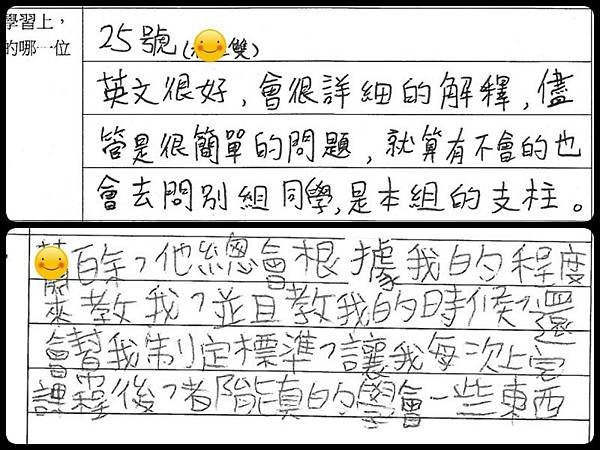 學習上，
的哪一位
25號(雙)
英文很好，會很詳細的解釋，儘
管是很簡單的問題，就算有不會的也
會去問別組同學，是本組的支柱。
百，他總會根據我的程度
來教我，並且教我的時候，還
會替我制定標準，讓我每次上完
課程後，都能真的學會一些東西